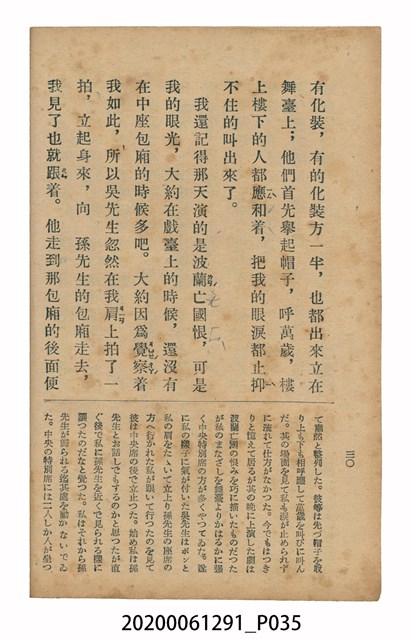 有化裝，有的化裝方一半，也都出來立在
舞臺上；他們首先舉起帽子，呼萬歲，樓
上樓下的人都應和着，把我的眼淚都止抑
不住的叫出來了。
我還記得那天演的是波蘭亡國恨，可是
我的眼光，大約在戲臺上的時候，還沒有
在中座包廂的時候多吧。大約因爲覺察着
我如此，所以吳先生忽然在我肩上拍了一
拍，立起身來，向　孫先生的包廂走去，
我見了也就跟着。他走到那包廂的後面便
三〇
て廊然と整列した。彼等は先づ帽子を取
り上も下も相呼應して萬歲を叫びに叫ん
だ。其の場面を見て私も淚が止められず
に流れて仕方がなかつた。今でもはつき
りと憶えて居るが其の晩に上演した劇は
波蘭亡國の恨みを巧に描いたものだつた
が私のまなざしを舞臺よりかはるかに强
く中央特別席の方が多くやつてゐた。
私の樣子に氣が付いた吳先生はポンと
私の肩をたゝいて立上り孫先生の座席の
方へ行かれた私が跟いて行つたのを見て
彼は中央席の後で立止つた。始め私は孫
先生とお話しでもするのかと思つたが直
ぐ後で私に孫先生を近くで見られる樣に
讓つたのだなと覺つた。私はそれから孫
先生が歸られる迄其處を動かないでゐ
た。中央の特別席には二人しか人が坐つ
20200061291_P035